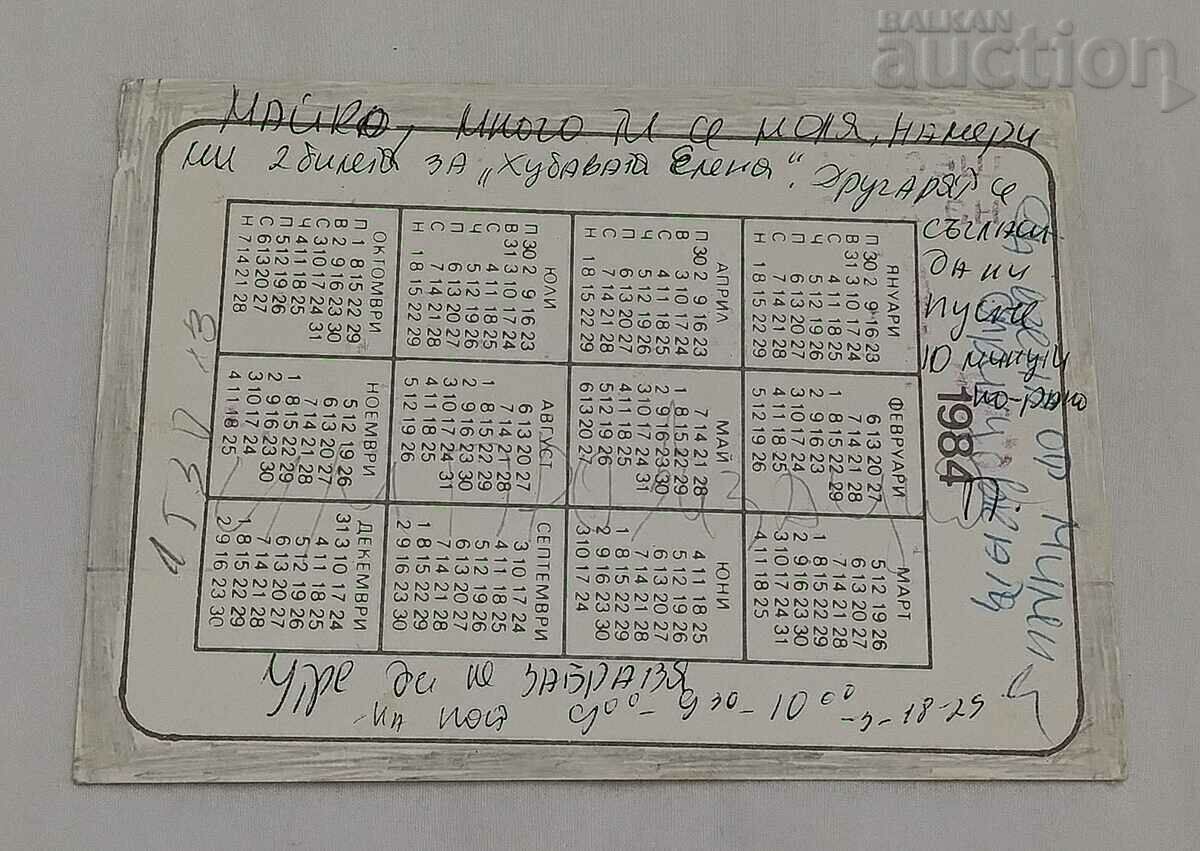 BALKAN
auction
МАЙКО, много ти се моля, намери
ми 2 билета за „Хубавата Елена“. Другарят е
съгласи
да ни
пусне
10 минути
по-рано
1984
ЯНУАРИ
П 30 2 9 16 23
В 31 3 10 17 24
С 4 11 18 25
Ч 5 12 19 26
П 6 13 20 27
С 7 14 21 28
Н 1 8 15 22 29
ФЕВРУАРИ
6 13 20 27
7 14 21 28
1 8 15 22 29
2 9 16 23
3 10 17 24
4 11 18 25
5 12 19 26
МАРТ
5 12 19 26
6 13 20 27
7 14 21 28
1 8 15 22 29
2 9 16 23 30
3 10 17 24 31
4 11 18 25
АПРИЛ
П 30 2 9 16 23
В 3 10 17 24
С 4 11 18 25
Ч 5 12 19 26
П 6 13 20 27
С 7 14 21 28
Н 1 8 15 22 29
МАЙ
7 14 21 28
1 8 15 22 29
2 9 16 23 30
3 10 17 24 31
4 11 18 25
5 12 19 26
6 13 20 27
ЮНИ
4 11 18 25
5 12 19 26
6 13 20 27
7 14 21 28
1 8 15 22 29
2 9 16 23 30
3 10 17 24
ЮЛИ
П 30 2 9 16 23
В 31 3 10 17 24
С 4 11 18 25
Ч 5 12 19 26
П 6 13 20 27
С 7 14 21 28
Н 1 8 15 22 29
АВГУСТ
6 13 20 27
7 14 21 28
1 8 15 22 29
2 9 16 23 30
3 10 17 24 31
4 11 18 25
5 12 19 26
СЕПТЕМВРИ
3 10 17 24
4 11 18 25
5 12 19 26
6 13 20 27
7 14 21 28
1 8 15 22 29
2 9 16 23 30
ОКТОМВРИ
П 1 8 15 22 29
В 2 9 16 23 30
С 3 10 17 24 31
Ч 4 11 18 25
П 5 12 19 26
С 6 13 20 27
Н 7 14 21 28
НОЕМВРИ
5 12 19 26
6 13 20 27
7 14 21 28
1 8 15 22 29
2 9 16 23 30
3 10 17 24
4 11 18 25
ДЕКЕМВРИ
31 3 10 17 24
4 11 18 25
5 12 19 26
6 13 20 27
7 14 21 28
1 8 15 22 29
2 9 16 23 30
Утре да не забравя
9⁰⁰-9³⁰-10⁰⁰